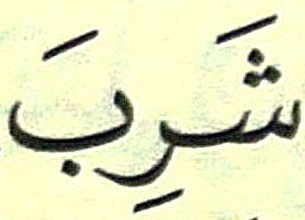 شَرِبَ